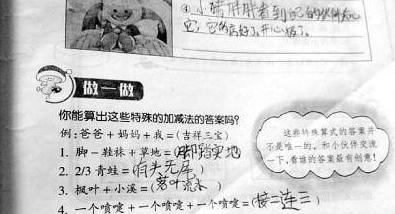 ④小猪胖胖看到自己的伙伴
做一做
你能算出这些特殊的加减法的答案吗?
例:爸爸+妈妈+我=(吉祥三宝)
1. 脚-鞋袜+草地=(脚踏实地
2. 2/3青蛙=(有头无尾)
3. 枫叶+小溪=(落叶流水)
4. 一个喷嚏+一个喷嚏+一个喷嚏=(接二连三)
这些特殊算式的答案并
不是唯一的,和小伙伴交流
一下,看谁的答案最有创意!